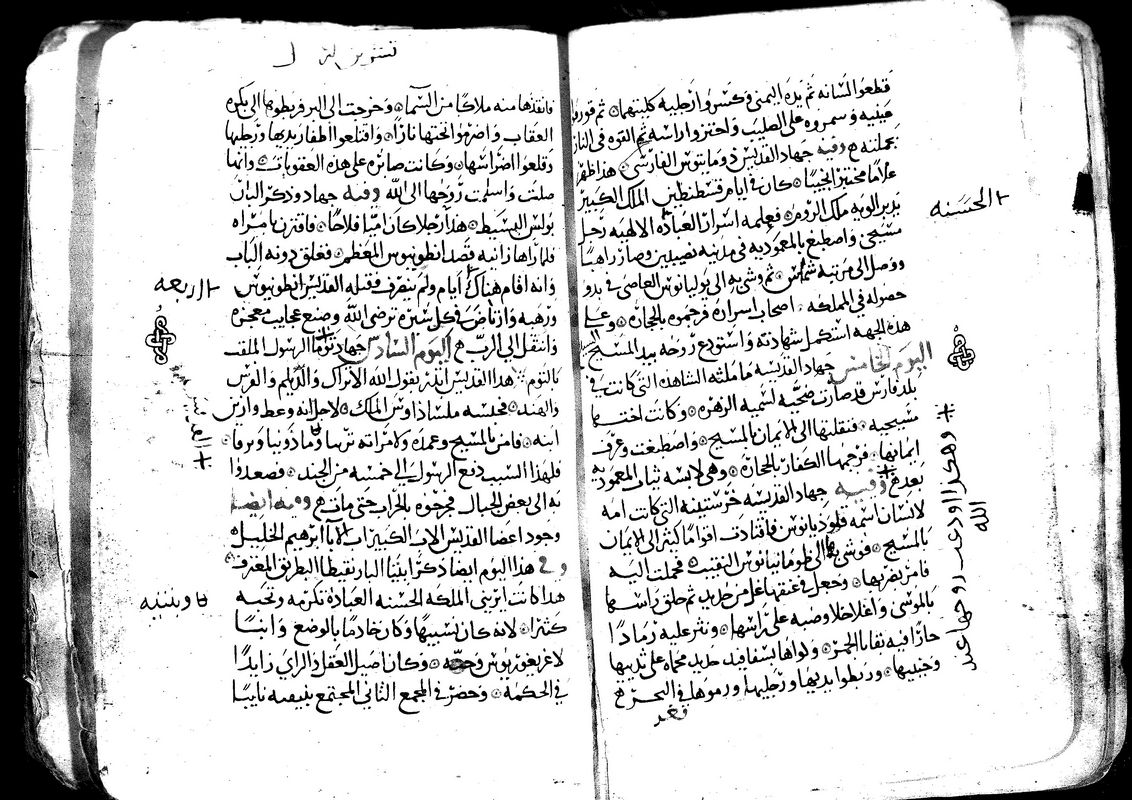 قطعوا لسانه ثم يده اليمنى وكسروا رجليه كلتيهما ثم قوروا
عينيه وسمروه على الصليب واحتزوا راسه ثم القوه في النار
بجملته وفيه جهاد القديس ذوماتيوس الفارسي هذا ظهر
كان في ايام قسطنطين الملك الكبير
بدير الويه ملك الروم فعلمه اسرار العباده الالهيه رجل
مسيحي واصطبغ بالمعموديه في مدينه نصيبين وصار راهبا
ووصل الى مرتبه شماس ثم وشي به الى يوليانوس العاصي في بدو
حصوله في المملكه اصحاب اسراره فرجموه بالحجاره وعلى
هذه الجهه استكمل شهادته واستودع روحه بيد المسيح
اليوم الخامس جهاد القديسه ماملثه الشاهده التي كانت في
بلد فارس قد صارت ضحيه لسميه الزهره وكانت اختها
مسيحيه فنقلتها الى الايمان بالمسيح واصطبغت وعرف
ايمانها فرجمها الكفار بالحجاره وهي لابسه ثياب المعموديه
بعد وفيه جهاد القديسه خرستينه التي كانت امه
لانسان اسمه قلوديانوس فاقتادت اقواما كثيرا الى الايمان
بالمسيح فوشي بها الى طوماتيانوس النقيب فحملت اليه
فامر بضربها وجعل في عنقها غل من حديد ثم حلق راسها
بالموسى واغلا خلا وصبه على راسها ونثر عليه رمادا
حارا فيه بقايا الجمر ولواها بسفافيد حديد محماه على ثدييها
وجنبيها وربطوا يديها ورجليها ورموها في البحر
فعد
الحسنه
وهكذا اودعت روحها عند
الله
فانقذها منه ملاكا من السما وخرجت الى البر فربطوها الى بكره
العقاب واضرموا تحتها نارا واقتلعوا اظفار يديها ورجليها
وقلعوا اضراسها وكانت صابره على هذه العقوبات وانها
صلت واسلمت روحها الى الله وفيه جهاد وذكر البار
بولس البسيط هذا رجلا كان اميا فلاحا فاقترن بامراه
فلما راها زانيه قصد انطونيوس المعظم فغلق دونه الباب
وانه اقام هناك ايام ولم ينصرف فقبله القديس انطونيوس
ورهبه وارتاض في كل سيره ترضي الله وصنع عجايب معجزه
وانتقل الى الرب اليوم السادس جهاد توما الرسول الملقب
بالتوم هذا القديس انذر بقول الله الاتراك والديلم والفرس
والهند فحبسه ملسداوس الملك لاجل انه وعظ وازن
ابنه فامن بالمسيح وعمده ولامراته ترتيا وماذونيا ونرقا
فلهذا السبب دفع الرسول الى خمسه من الجند فصعدوا
به الى بعض الجبال فجرحوه بالحراب حتى مات وفيه ايضا
وجود اعضا القديس الاب الكبير ابراميم الخليل
وفي هذا اليوم ايضا ذكر ابينا البار نقيطا البطريق المعترف
هذا كانت ايريني الملكه الحسنه العباده تكرمه وتحبه
كثيرا لانه كان نسيبها وكان خادما بالوضع وابنا
لاغريغوريوس وكان اصيل العقل ذا الراي زايدا
في الحكمه وحضر في المجمع الثاني المجتمع بنيقيه نايبا
الاربعه